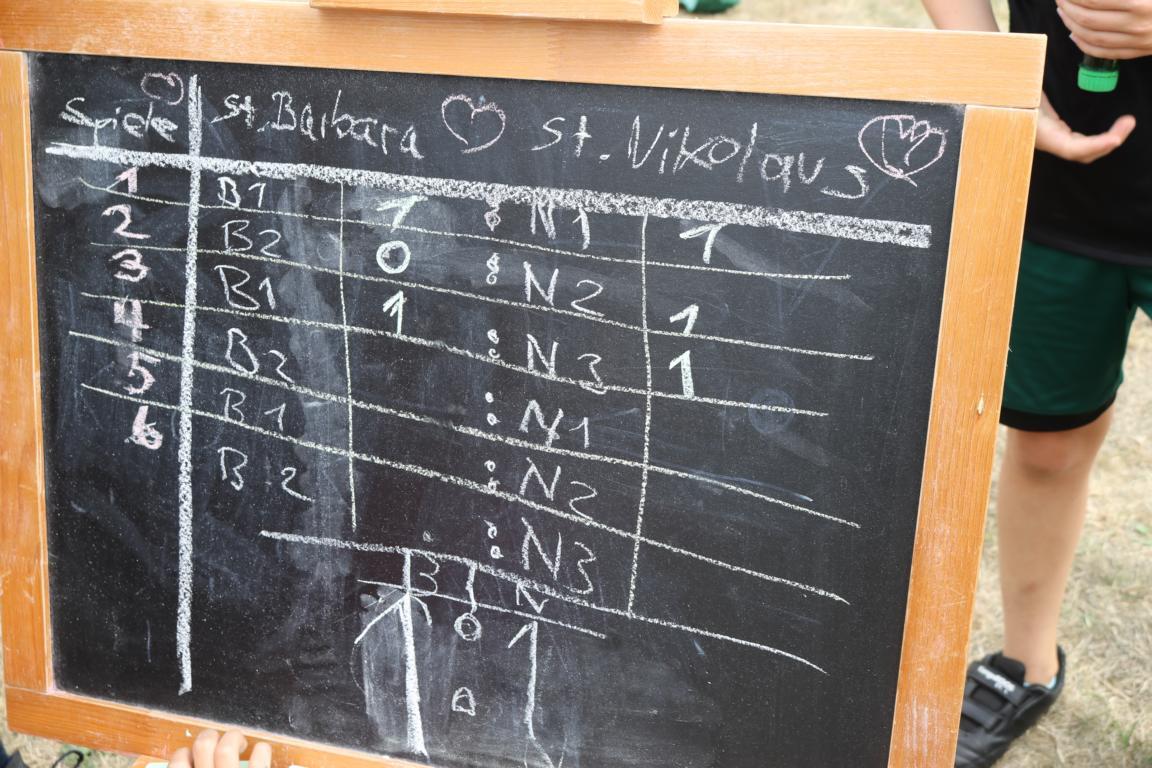 Spiele St. Barbara St. Nikolaus
1 B1 1 : N1 1
2 B2 0 : N2 1
3 B1 1 : N3 1
4 B2 : N1
5 B1 : N2
6 B2 : N3
B : N
1 : 1